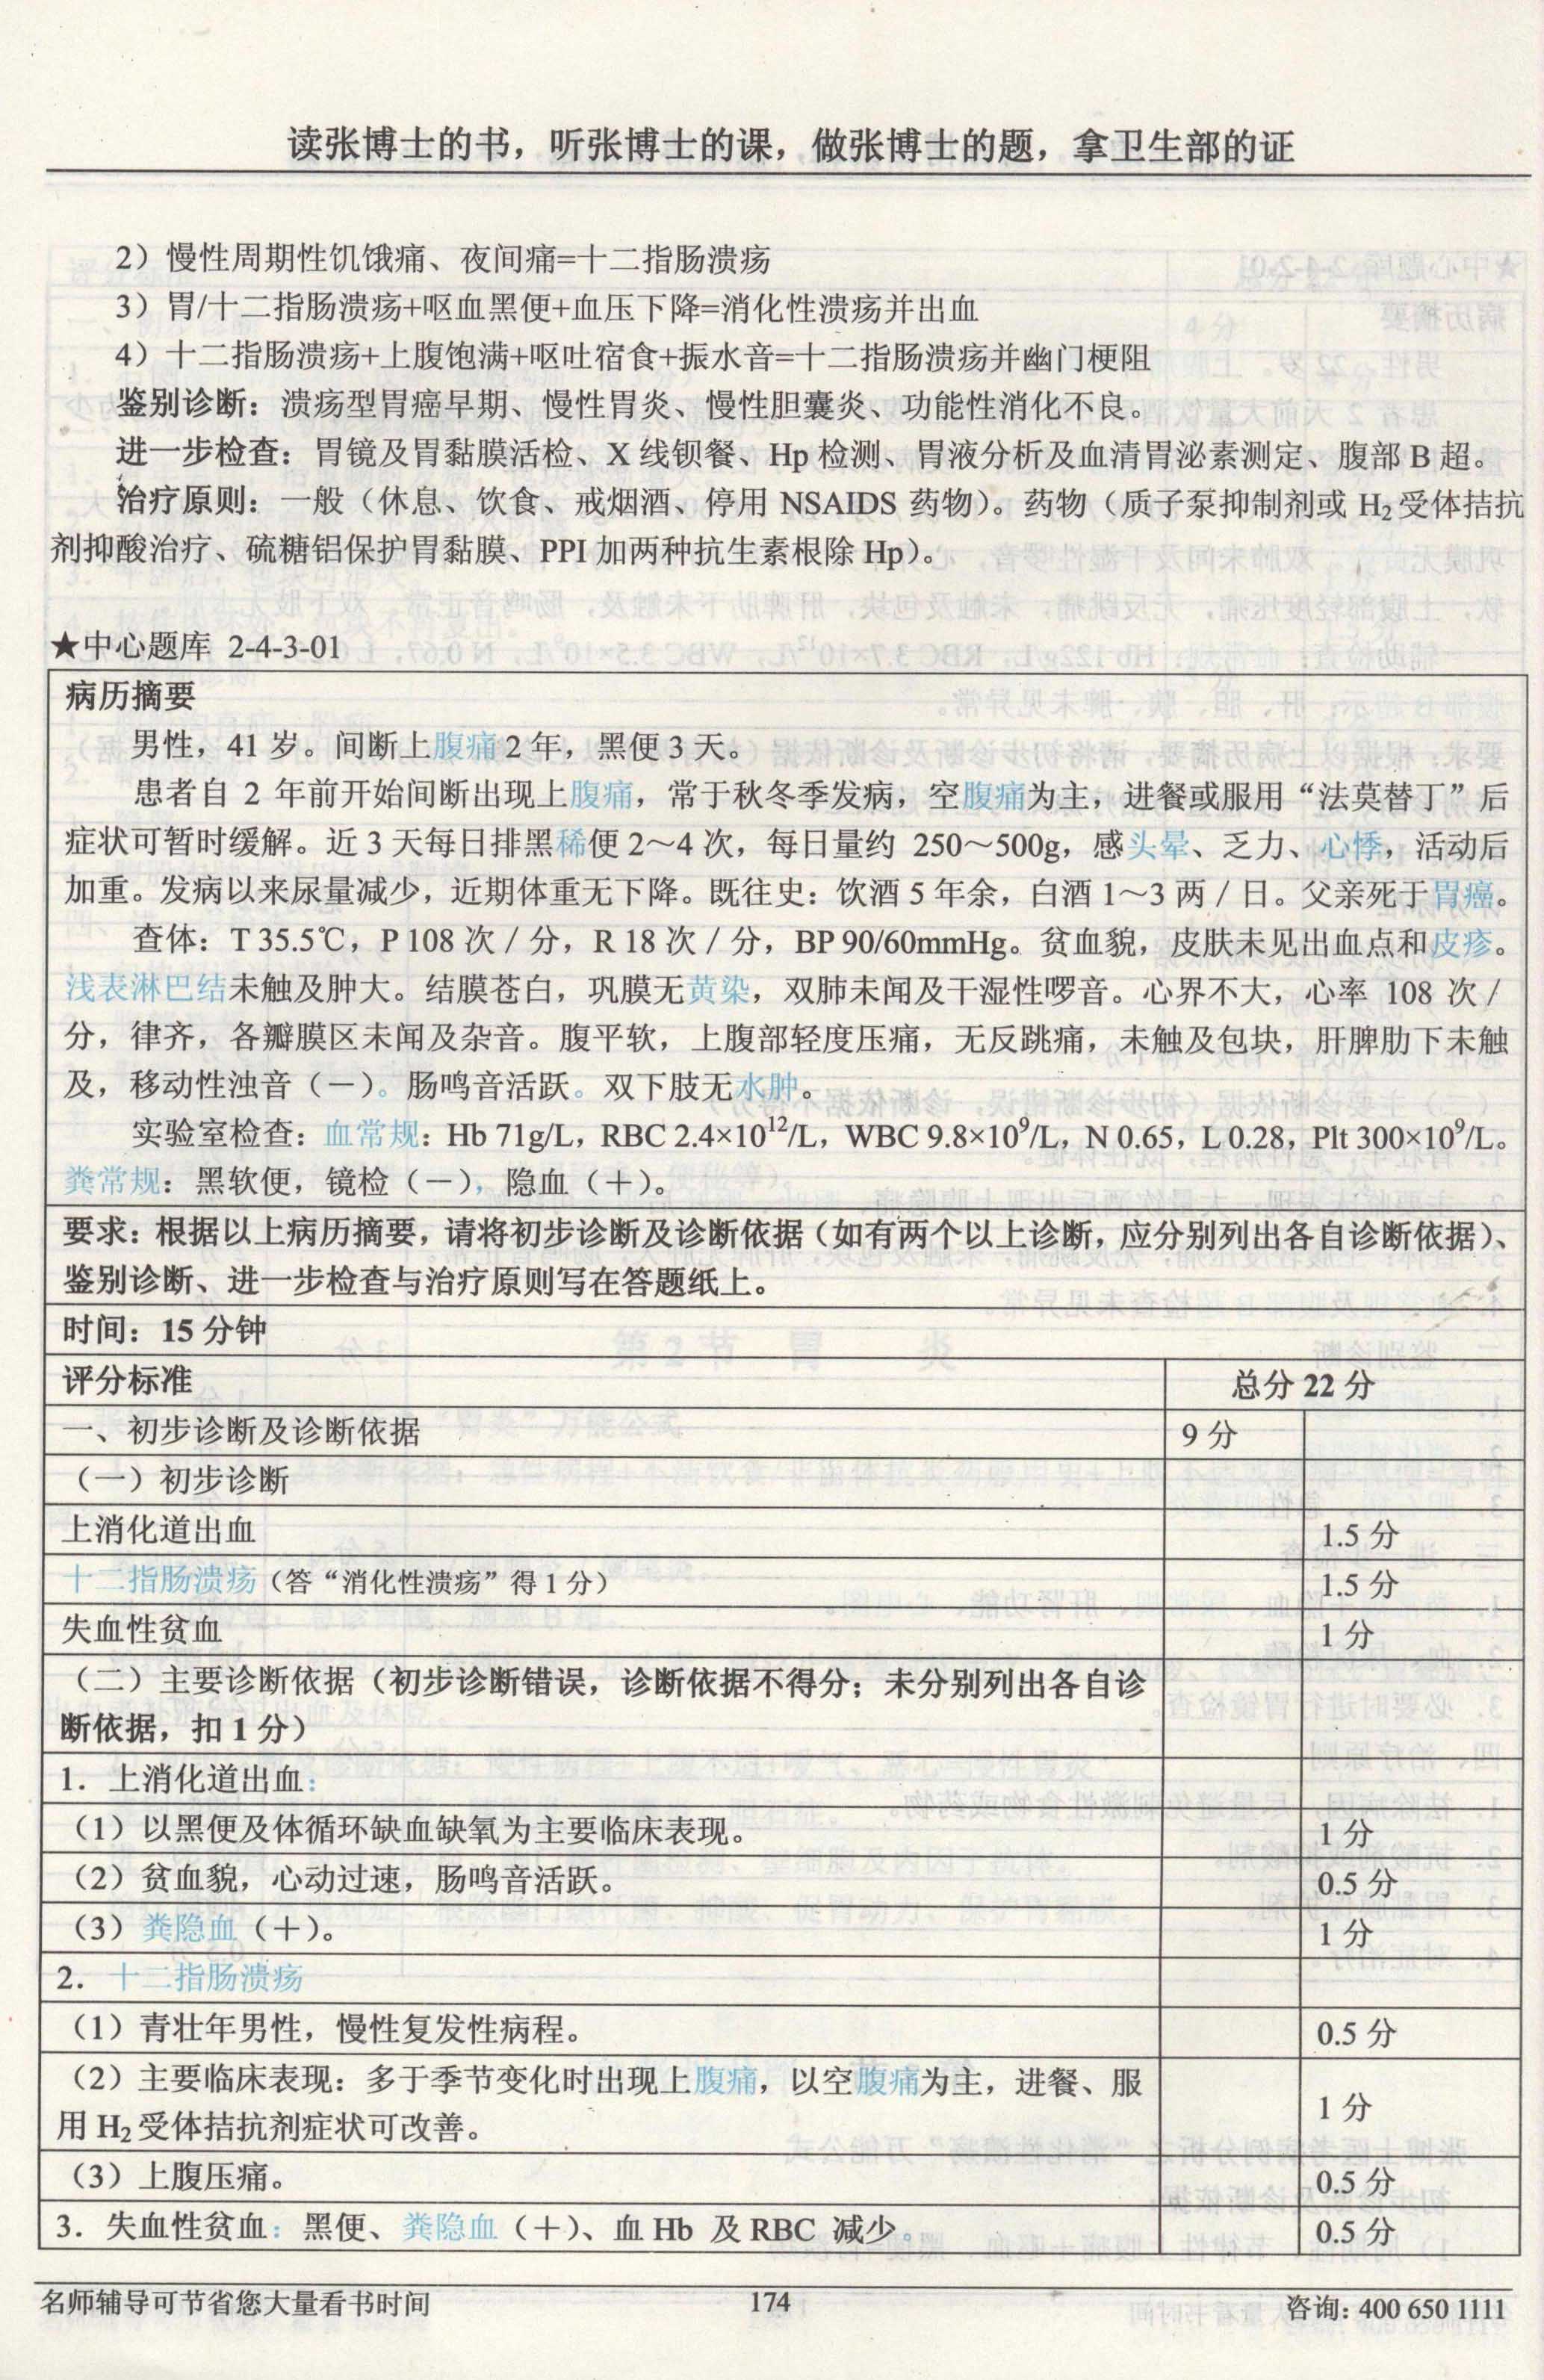 读张博士的书，听张博士的课，做张博士的题，拿卫生部的证
2）慢性周期性饥饿痛、夜间痛=十二指肠溃疡
3）胃/十二指肠溃疡+呕血黑便+血压下降=消化性溃疡并出血
4）十二指肠溃疡+上腹饱满+呕吐宿食+振水音=十二指肠溃疡并幽门梗阻
鉴别诊断：溃疡型胃癌早期、慢性胃炎、慢性胆囊炎、功能性消化不良。
进一步检查：胃镜及胃黏膜活检、X 线钡餐、Hp 检测、胃液分析及血清胃泌素测定、腹部 B 超。
治疗原则：一般（休息、饮食、戒烟酒、停用 NSAIDS 药物）。药物（质子泵抑制剂或 H₂受体拮抗
剂抑酸治疗、硫糖铝保护胃黏膜、PPI 加两种抗生素根除 Hp）。
★中心题库 2-4-3-01
病历摘要
男性，41 岁。间断上腹痛 2 年，黑便 3 天。
患者自 2 年前开始间断出现上腹痛，常于秋冬季发病，空腹痛为主，进餐或服用“法莫替丁”后
症状可暂时缓解。近 3 天每日排黑稀便 2～4 次，每日量约 250～500g，感头晕、乏力、心悸，活动后
加重。发病以来尿量减少，近期体重无下降。既往史：饮酒 5 年余，白酒 1～3 两 / 日。父亲死于胃癌。
查体：T 35.5℃，P 108 次 / 分，R 18 次 / 分，BP 90/60mmHg。贫血貌，皮肤未见出血点和皮疹。
浅表淋巴结未触及肿大。结膜苍白，巩膜无黄染，双肺未闻及干湿性啰音。心界不大，心率 108 次 /
分，律齐，各瓣膜区未闻及杂音。腹平软，上腹部轻度压痛，无反跳痛，未触及包块，肝脾肋下未触
及，移动性浊音（－）。肠鸣音活跃。双下肢无水肿。
实验室检查：血常规：Hb 71g/L，RBC 2.4×10¹²/L，WBC 9.8×10⁹/L，N 0.65，L 0.28，Plt 300×10⁹/L。
粪常规：黑软便，镜检（－），隐血（＋）。
要求：根据以上病历摘要，请将初步诊断及诊断依据（如有两个以上诊断，应分别列出各自诊断依据）、
鉴别诊断、进一步检查与治疗原则写在答题纸上。
时间：15 分钟
评分标准 总分 22 分
一、初步诊断及诊断依据 9 分
（一）初步诊断
上消化道出血 1.5 分
十二指肠溃疡（答“消化性溃疡”得 1 分） 1.5 分
失血性贫血 1 分
（二）主要诊断依据（初步诊断错误，诊断依据不得分；未分别列出各自诊
断依据，扣 1 分）
1．上消化道出血：
（1）以黑便及体循环缺血缺氧为主要临床表现。 1 分
（2）贫血貌，心动过速，肠鸣音活跃。 0.5 分
（3）粪隐血（＋）。 1 分
2．十二指肠溃疡
（1）青壮年男性，慢性复发性病程。 0.5 分
（2）主要临床表现：多于季节变化时出现上腹痛，以空腹痛为主，进餐、服
用 H₂受体拮抗剂症状可改善。 1 分
（3）上腹压痛。 0.5 分
3．失血性贫血：黑便、粪隐血（＋）、血 Hb 及 RBC 减少。 0.5 分
名师辅导可节省您大量看书时间 174 咨询：400 650 1111